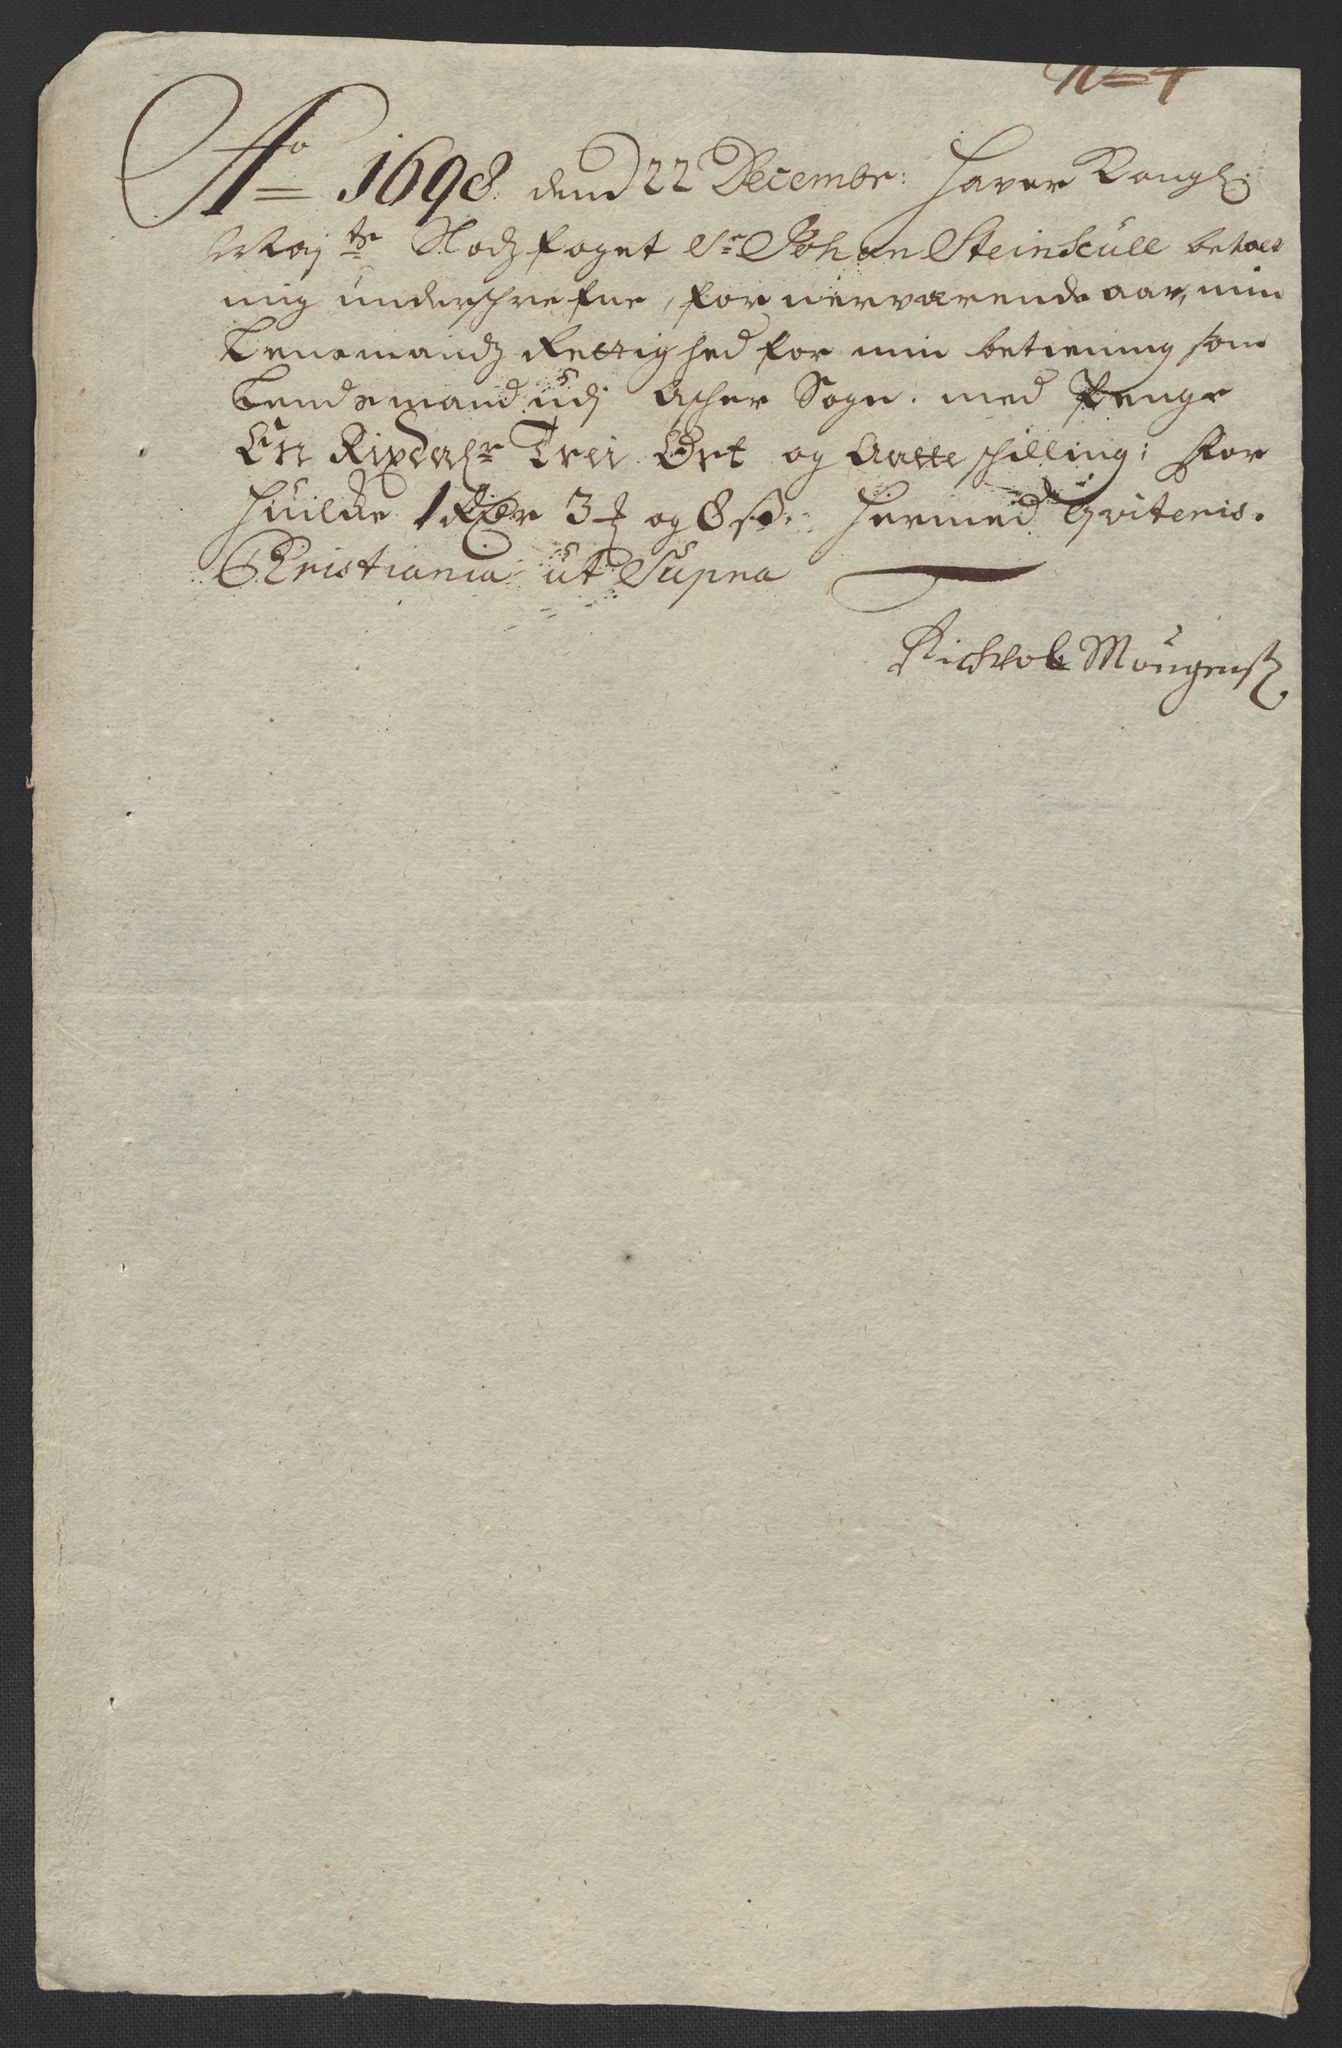 No 4
Ao 1698 dend 22 Decembr: Haver Kongl:
Maj tz Slodz foget Sr Johan Steinkull betalt
mig underschrefne, for nerværende aar, min
Lensmandz Rettighed for min betiening som
Lendsmand udj Asker Sogn. med Penge
En Rixdalr Trei Ort og Aatte schilling; For
huilke 1 Rdr 3 og 8 ß. Hermed Qviteris.
Christiania ut Supra
Mougensß